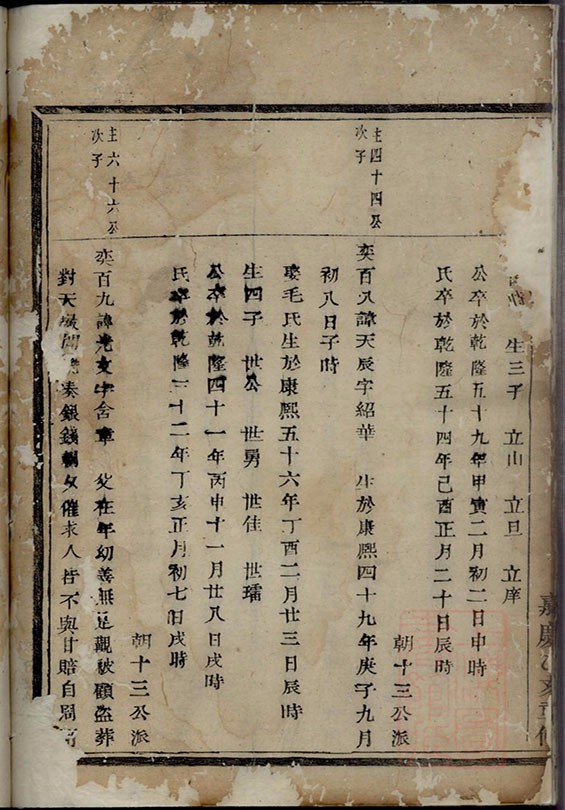 生三子 立山 立旦 立庠
公卒於乾隆五十九年甲寅二月初二日申時
氏卒於乾隆五十四年己酉正月二十日辰時
朝十三公派
圭四十四公
次子
奕百八諱天辰字紹華 生於康熙四十九年庚子九月
初八日子時
娶毛氏生於康熙五十六年丁酉二月廿三日辰時
生四子 世公 世勇 世佳 世璠
公卒於乾隆四十一年丙申十一月廿八日戌時
氏卒於乾隆三十二年丁亥正月初七日戌時
朝十三公派
圭六十六公
次子
奕百九諱光文字含章 父在年幼善無足觀被顧盜葬
對天 奏銀錢朝夕催求人皆不與甘賠自
嘉慶